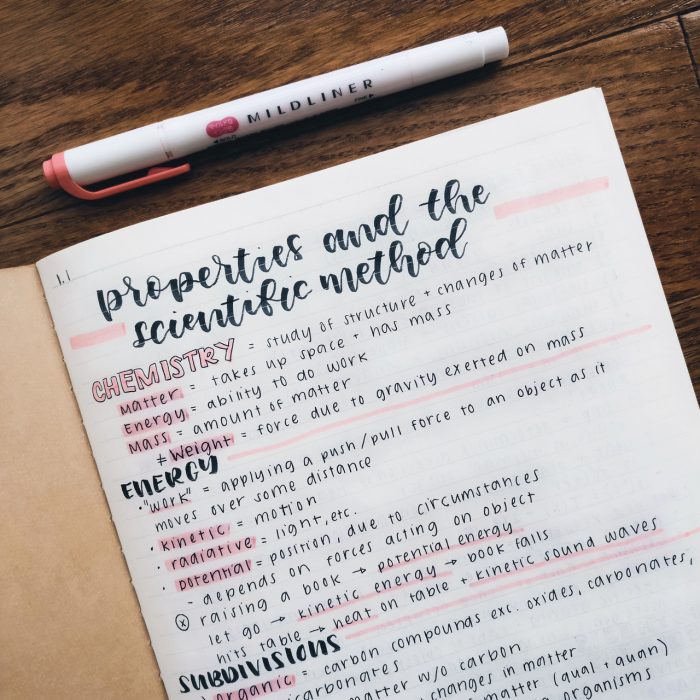 MILDLINER
1.1
properties and the
scientific method
CHEMISTRY = study of structure + changes of matter
Matter = takes up space + has mass
Energy = ability to do work
Mass = amount of matter
≠ Weight = force due to gravity exerted on mass
ENERGY
• "work" = applying a push/pull force to an object as it
moves over some distance
• kinetic = motion
• radiative = light, etc.
• potential = position, due to circumstances
- depends on forces acting on object
ⓧ raising a book → potential energy
let go → kinetic energy → book falls
hits table → heat on table + kinetic sound waves
SUBDIVISIONS
organic = carbon compounds exc. oxides, carbonates,
carbonates
matter w/o carbon
changes in matter
matter (qual + quan)
organisms